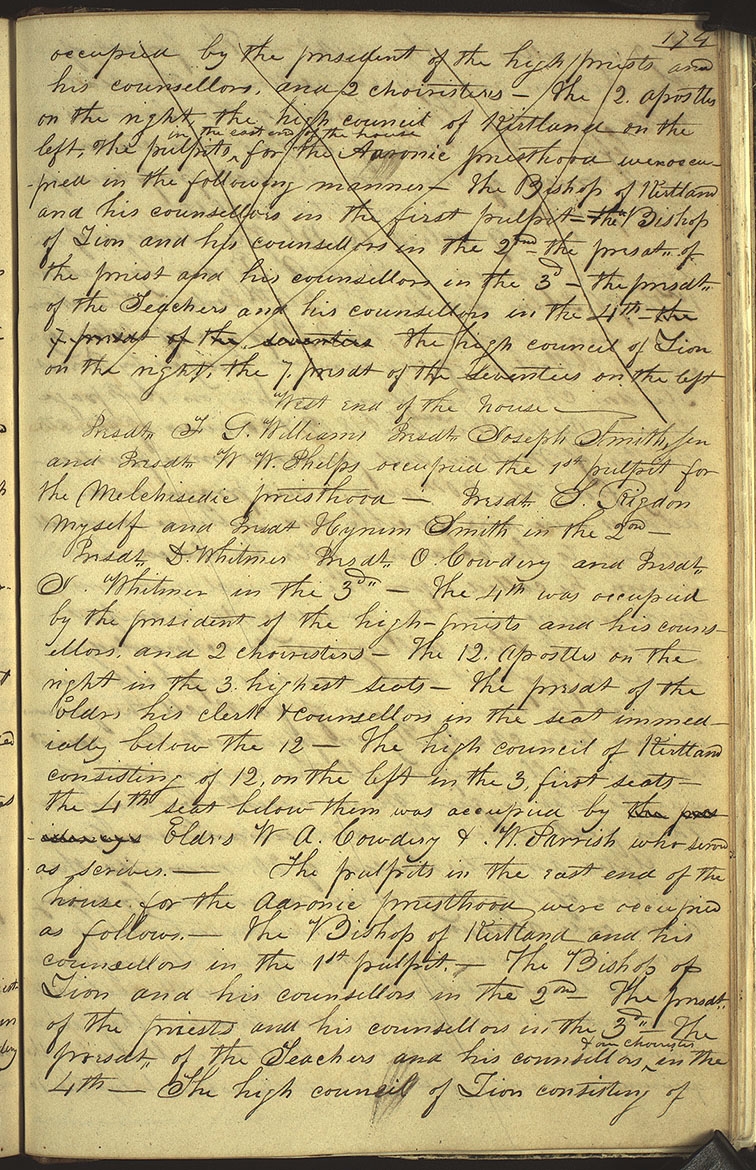 174
occupied by the president of the high priests and
his counsellors, and 2 choiresters — The 2. apostles
on the right, the high council of Kirtland on the
left, The pulpits ^in the east end of the house^ for the Aaronic priesthood were occu-
-pied in the following manner — The Bishop of Kirtland
and his counsellors in the first pulpit — the Bishop
of Zion and his counsellors in the 2nd — the presdt. of
the priest and his counsellors in the 3d — the presdt.
of the Teachers and his counsellors in the 4th — the
7 presdt of the seventies the high council of Zion
on the right, the 7. presdt of the Seventies on the left
West end of the house —
Presdt. F G. Williams Presdt. Joseph Smith, Sen
and Presdt. W W. Phelps occupied the 1st pulpit for
the Melchisedic priesthood — Presdt. S. Rigdon
myself and Presdt Hyrum Smith in the 2nd —
Presdt. D. Whitmer Presdt. O. Cowdery and Presdt.
J. Whitmer in the 3d — The 4th was occupied
by the president of the high-priests and his couns-
ellors, and 2 choiresters — The 12. apostles on the
right in the 3. highest seats — The presdt of the
Eldrs his clerk & counsellors in the seat immed-
ially below the 12 — The high council of Kirtland
consisting of 12, on the left in the 3, first seats —
the 4th seat below them was occupied by the
Eldr.s W A. Cowdery & W. Parrish who served
as scribes. — The pulpits in the east end of the
house for the Aaronic priesthood were occupied
as follows. — The Bishop of Kirtland and his
councellors in the 1st pulpit. — The Bishop of
Zion and his counsellors in the 2nd — The presdt.
of the priests and his counsellors in the 3d — The
presdt. of the Teachers and his counsellors ^& one choirister^ in the
4th — The high council of Zion consisting of